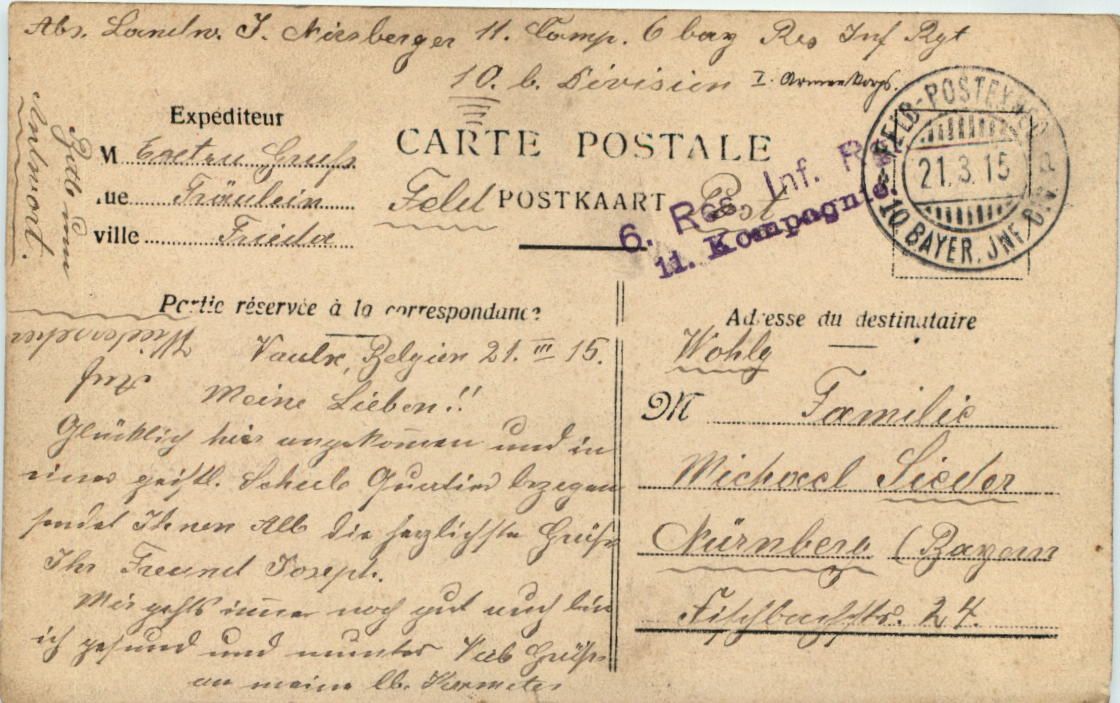 Abs. Landw. J. Niesberger 11. Comp. 6 bay Res Inf Rgt
10. b. Division I. Armeekorps.
Expéditeur
M Extra Gruß
rue Fräulein
ville Frieda
Bitte um
Antwort.
CARTE POSTALE
Feld POSTKAART Post
6. Res. Inf. R
11. Kompagnie.
FELD-POSTEXPED.
21.3.15
10. BAYER. JNF. DIV.
Partie réservée à la correspondance
Wiedersehen
Auf
Vaulx, Belgien 21. III 15.
Meine Lieben!!
Glücklich hier angekommen und in
einer geistl. Schule Quartier bezogen
sendet Ihnen All die herzlichste Grüße
Ihr Freund Joseph.
Mir gehts immer noch gut auch bin
ich gesund und munter Grüße
an meine lb.
Adresse du destinataire
Wohlg
M Familie
Michael Sieder
Nürnberg (Bayern
Fischbachstr. 24.